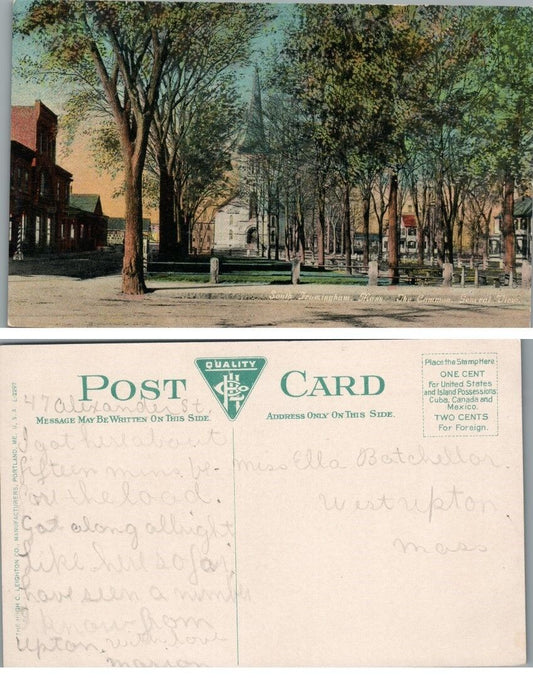 South Framingham, Mass. The Common, General View.
POST CARD
QUALITY
MESSAGE MAY BE WRITTEN ON THIS SIDE.
ADDRESS ONLY ON THIS SIDE.
Place the Stamp Here
ONE CENT
For United States
and Island Possessions
Cuba, Canada and
Mexico.
TWO CENTS
For Foreign.
THE HUGH C. LEIGHTON CO., MANUFACTURERS, PORTLAND, ME. U.S.A.
47 Alexander St.
I got here about
fifteen mins. be-
fore the load.
Got along allright
Like here so far
have seen a number
I know from
Upton. With love
Marion
Miss Ella Batchellor.
West Upton
Mass